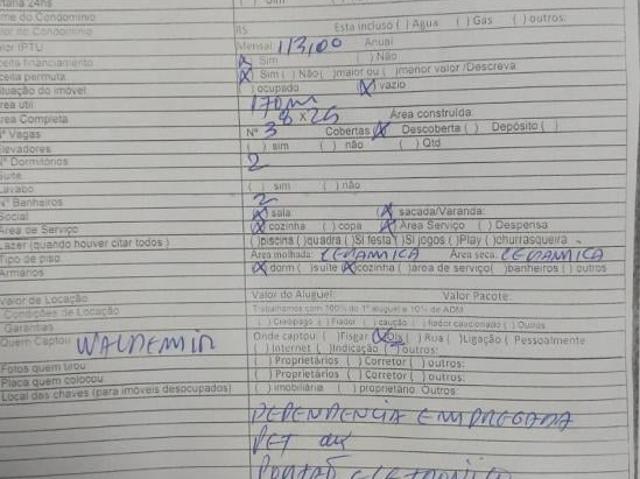 me do Condomínio
R$ Esta incluso ( ) Agua ( ) Gas ( ) outros:
lor IPTU Mensal 113,00 Anual
ceita financiamento X Sim ( ) Não
ceita permuta X Sim ( ) Não( )maior ou ( )menor valor /Descreva
ituação do imóvel ( ) ocupado (X) vazio
rea útil 170m
rea Completa 8 x 25 Área construída:
Nº Vagas Nº 3 Cobertas X Descoberta ( ) Depósito ( )
levadores ( ) sim ( ) não ( ) Qtd
Nº Dormitórios 2
Suíte
Lavabo ( ) sim ( ) não
Nº Banheiros 2
Social (X) sala (X) sacada/Varanda:
Área de Serviço (X) cozinha ( ) copa (X) Área Serviço ( ) Despensa
Lazer (quando houver citar todos ) ( )piscina ( )quadra ( )Sl festa ( )Sl jogos ( )Play ( )churrasqueira
Tipo de piso Área molhada: CERAMICA Área seca: CERAMICA
Armários (X) dorm ( )suíte (X)cozinha ( )área de serviço( )banheiros ( ) outros
Valor de Locação Valor do Aluguel: Valor Pacote:
Condições de Locação Trabalhamos com 100% do 1º aluguel e 10% de ADM
Garantias ( ) Fiador ( ) caução ( ) fiador caucionado ( ) Outros
Quem Captou WALDEMIR Onde captou: ( )Fisgar (X) ( ) Rua ( )Ligação ( ) Pessoalmente
( )Internet ( )Indicação ( )outros:
Fotos quem tirou ( ) Proprietários ( ) Corretor ( ) outros:
Placa quem colocou ( ) Proprietários ( ) Corretor ( ) outros:
Local das chaves (para imóveis desocupados) ( ) imobiliária ( ) proprietário Outros:
DEPENDENCIA EMPREGADA
PET OK
PORTÃO ELETRONICO